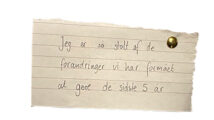 Jeg er så stolt af de
forandringer vi har formået
at gøre de sidste 5 år